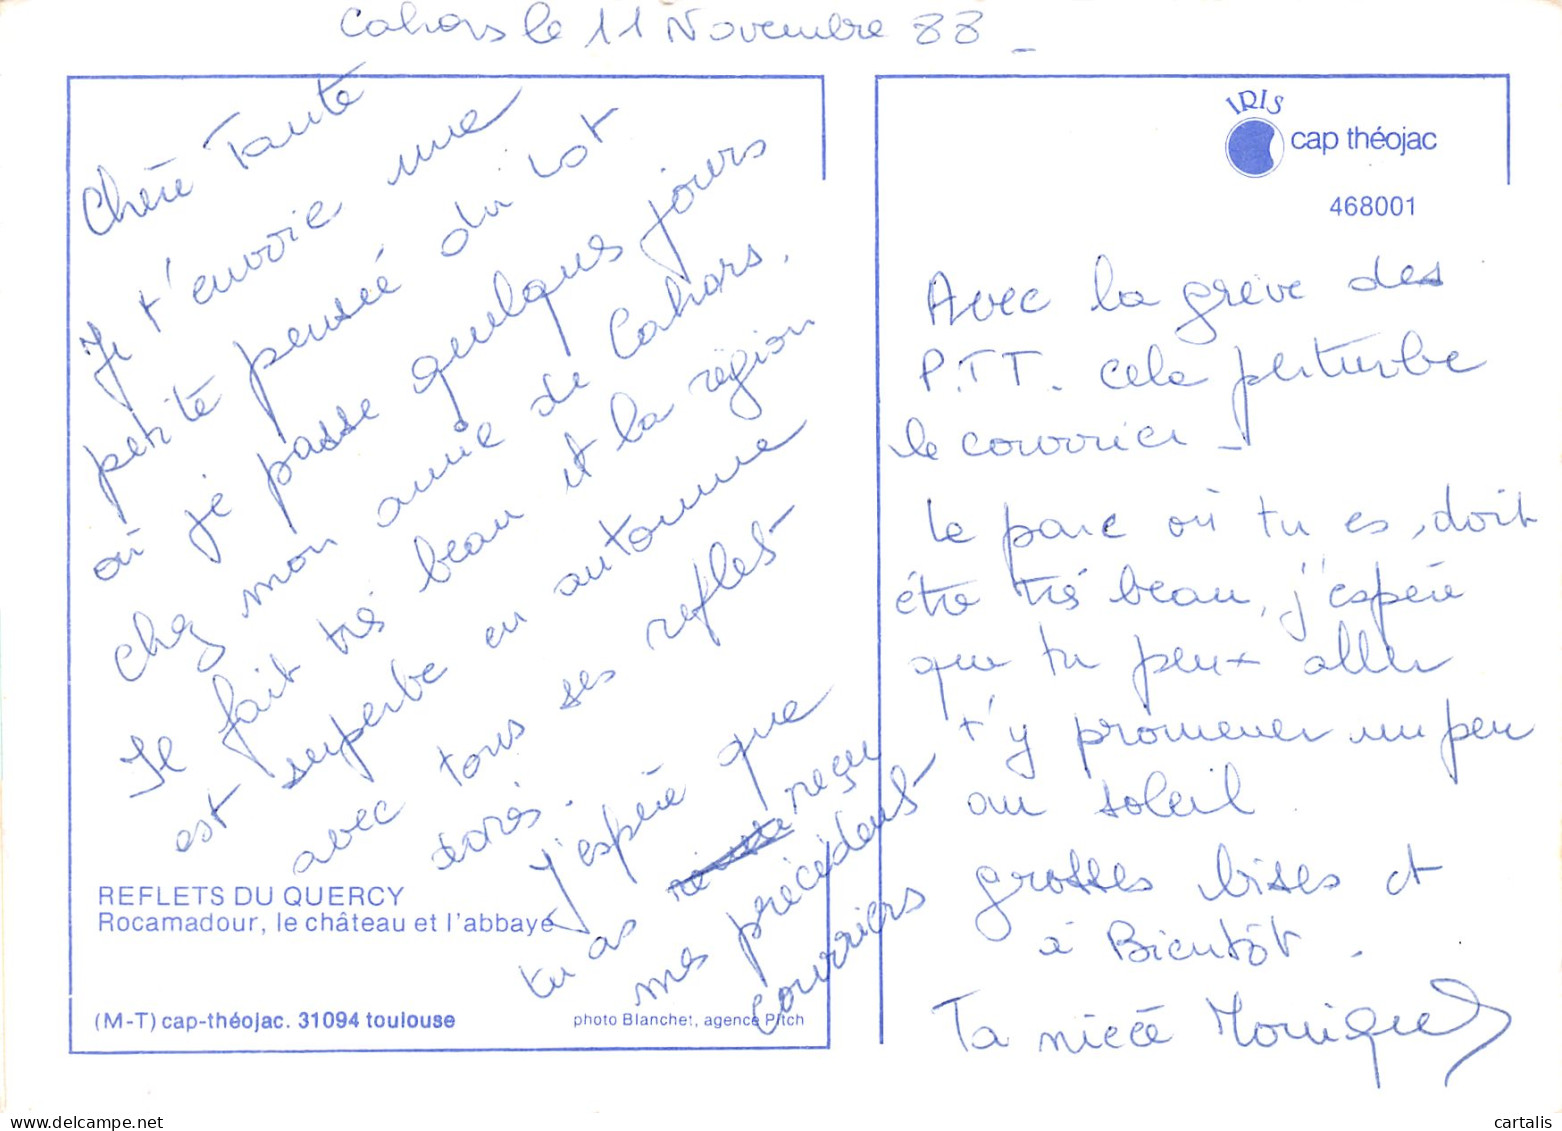 Cahors le 11 Novembre 88_
Chère Tante
Je t'envoie une
petite pensée du Lot
où je passe quelques jours
chez mon amie de Cahors.
Il fait très beau et la région
est superbe en automne
avec tous ses reflets
dorés.
J'espère que
tu as reçu
mes précédents
courriers
REFLETS DU QUERCY
Rocamadour, le château et l'abbaye
(M-T) cap-théojac. 31094 toulouse
photo Blanchet, agence Pitch
IRIS
cap théojac
468001
Avec la grève des
P.T.T. cela perturbe
le courrier_
Le parc où tu es, doit
être très beau, j'espère
que tu peux aller
t'y promener un peu
au soleil.
grosses bises et
à Bientôt.
Ta nièce Monique
cartalis